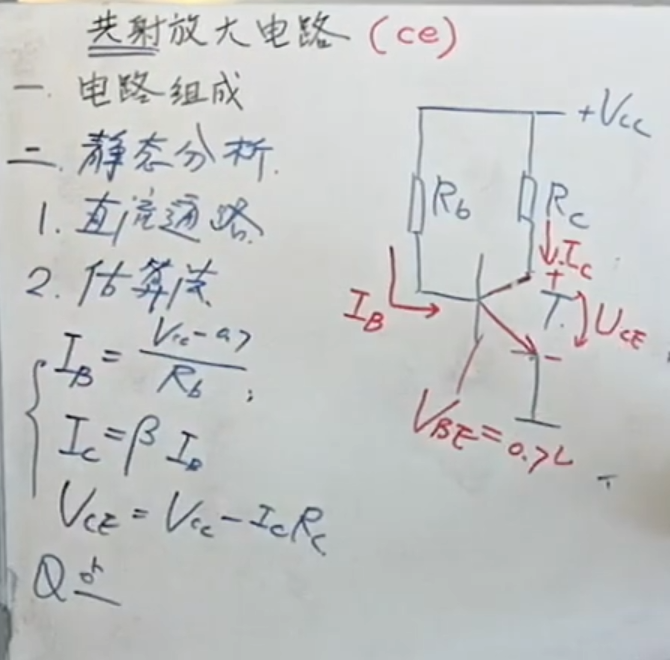 共射放大电路 (ce)
一. 电路组成
二. 静态分析.
1. 直流通路
2. 估算法
I_B = (V_CC - 0.7) / R_b ;
I_C = β I_B
V_CE = V_CC - I_C R_C
Q点
+V_CC
R_b
R_C
I_C
I_B
+
T
U_CE
-
V_BE = 0.7V